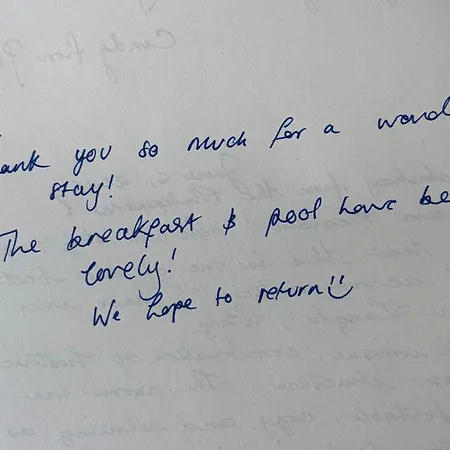 ank you so much for a wond
stay!
The breakfast & pool have be
lovely!
We hope to return!!